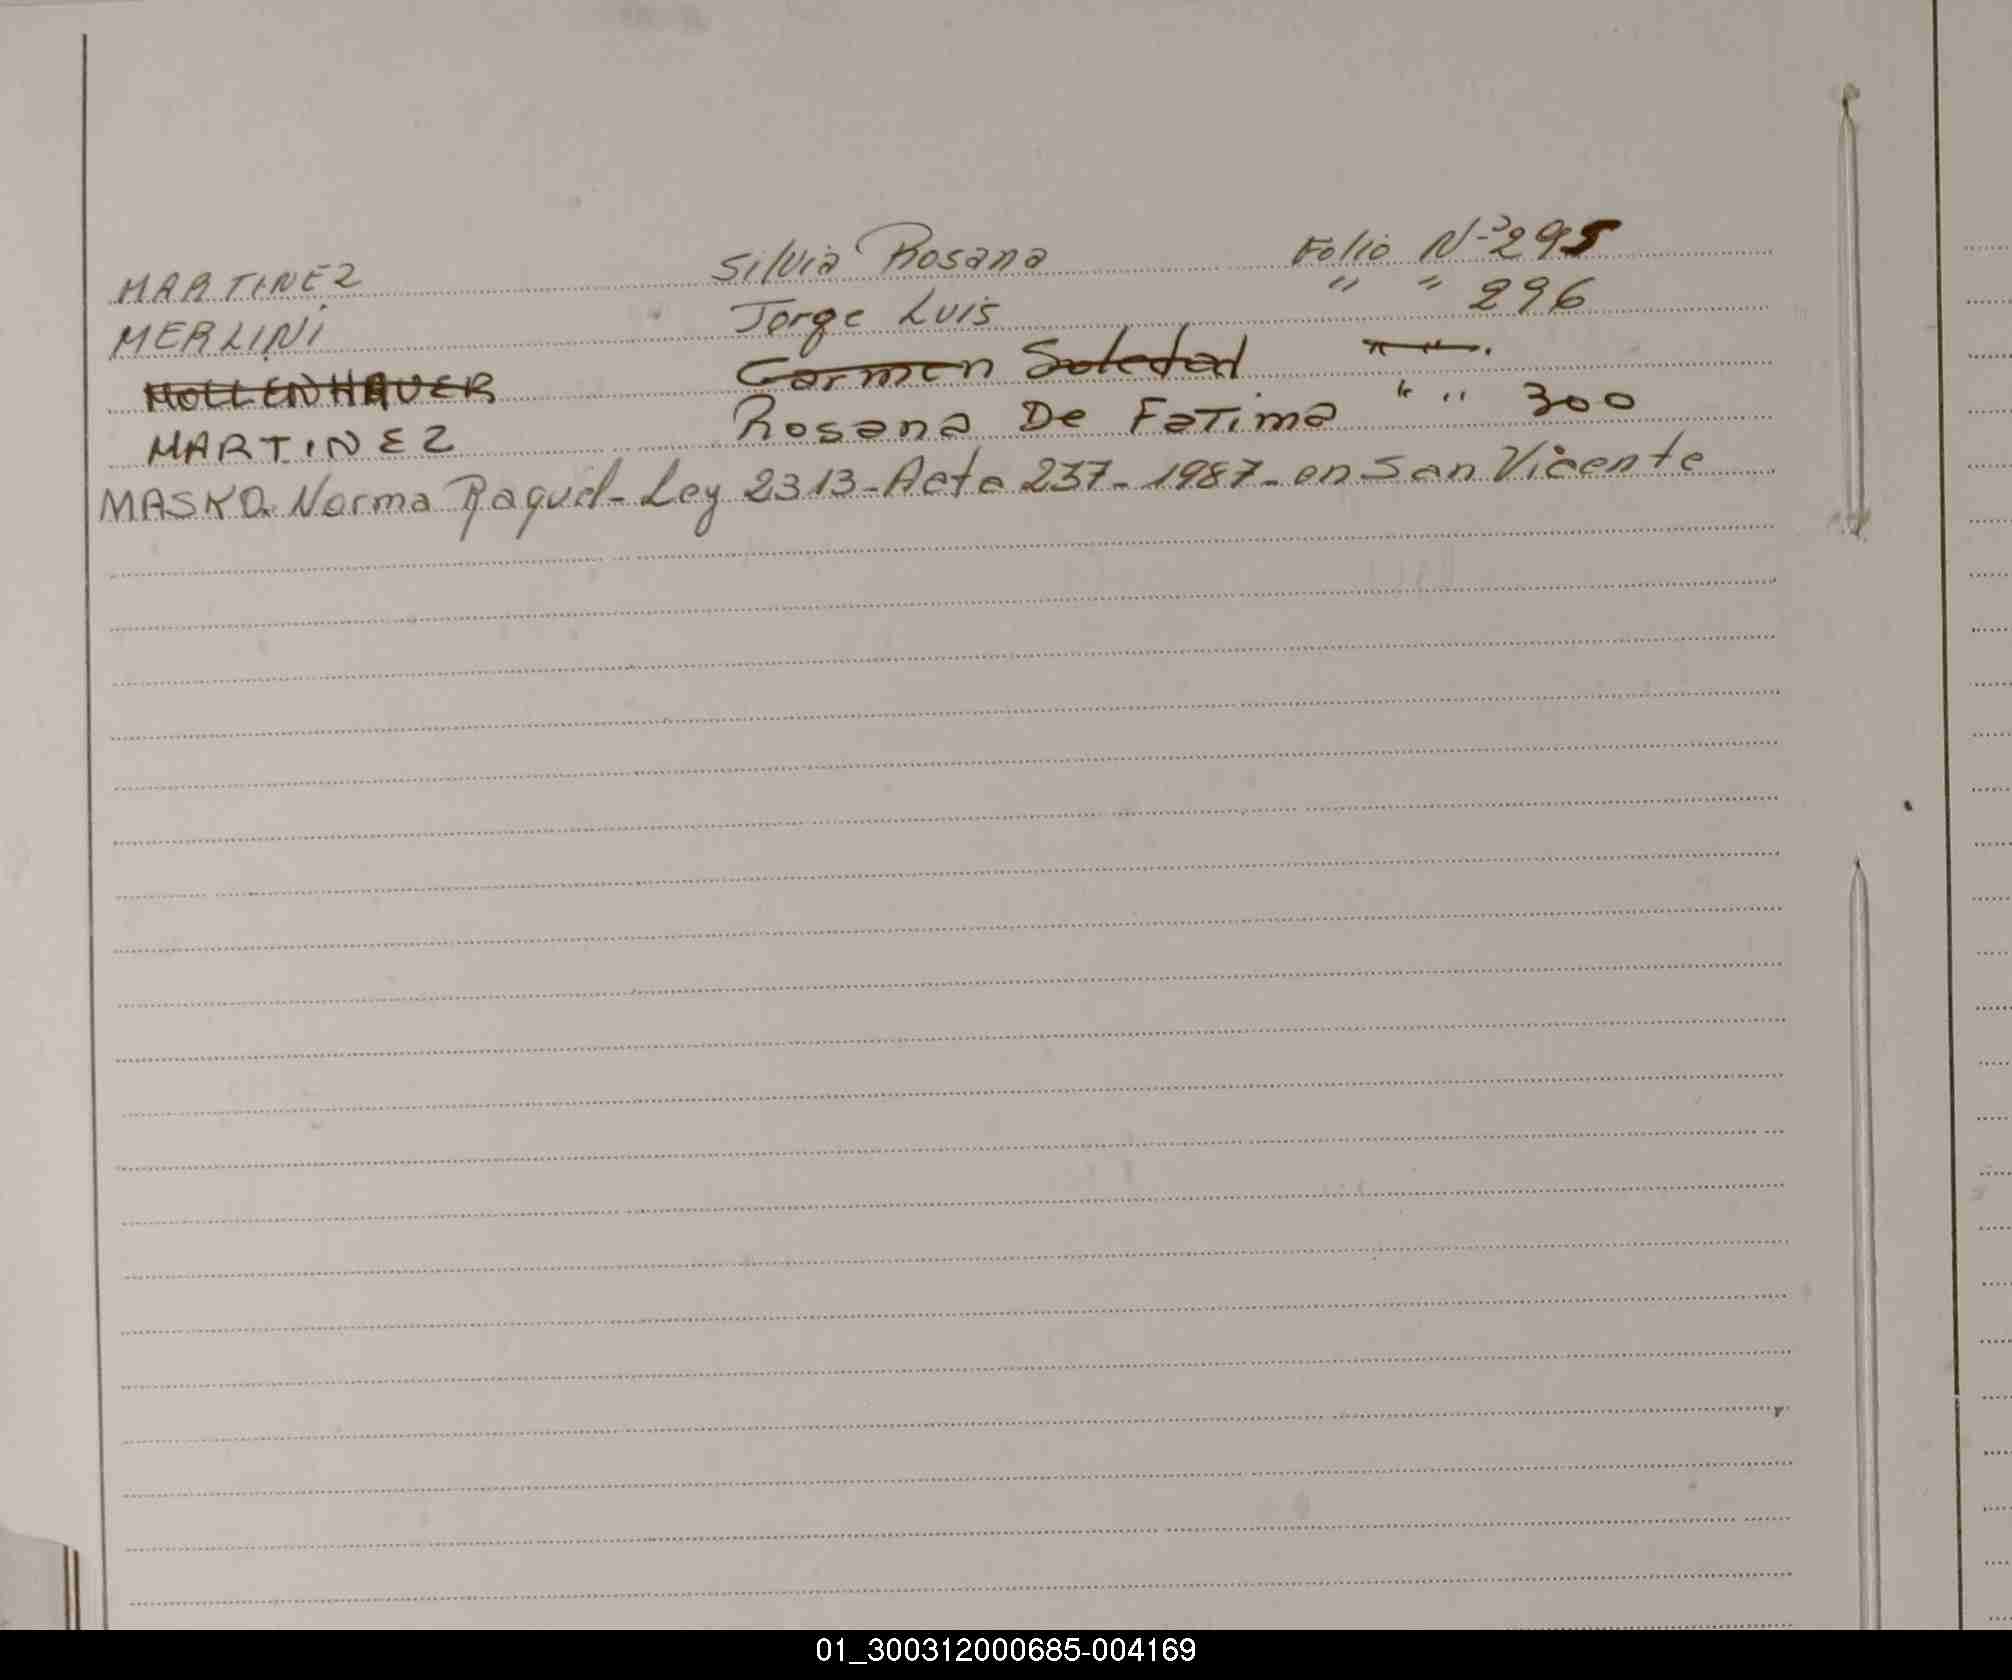 MARTINEZ Silvia Rosana Folio Nº 295
MERLINI Jorge Luis " " 296
MOLLENHAUER Carmen Soledad " " .
MARTINEZ Rosana De Fatima " " 300
MASKO. Norma Raquel - Ley 2313 - Acta 237 - 1987 - en San Vicente
01_300312000685-004169